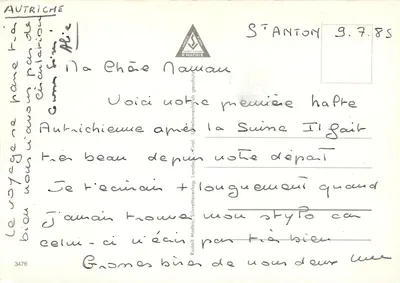 AUTRICHE
St ANTON 9.7.85
Ma Chère Maman
Voici notre première halte
Autrichienne après la Suisse Il fait
très beau depuis notre départ
Je t'écrirais + longuement quand
j'aurais trouvé mon stylo car
celui-ci n'écris pas très bien
Grosses bises de nous deux
Le voyage se passe très
bien nous n'avons pas de
circulation
Grosses bises
3476